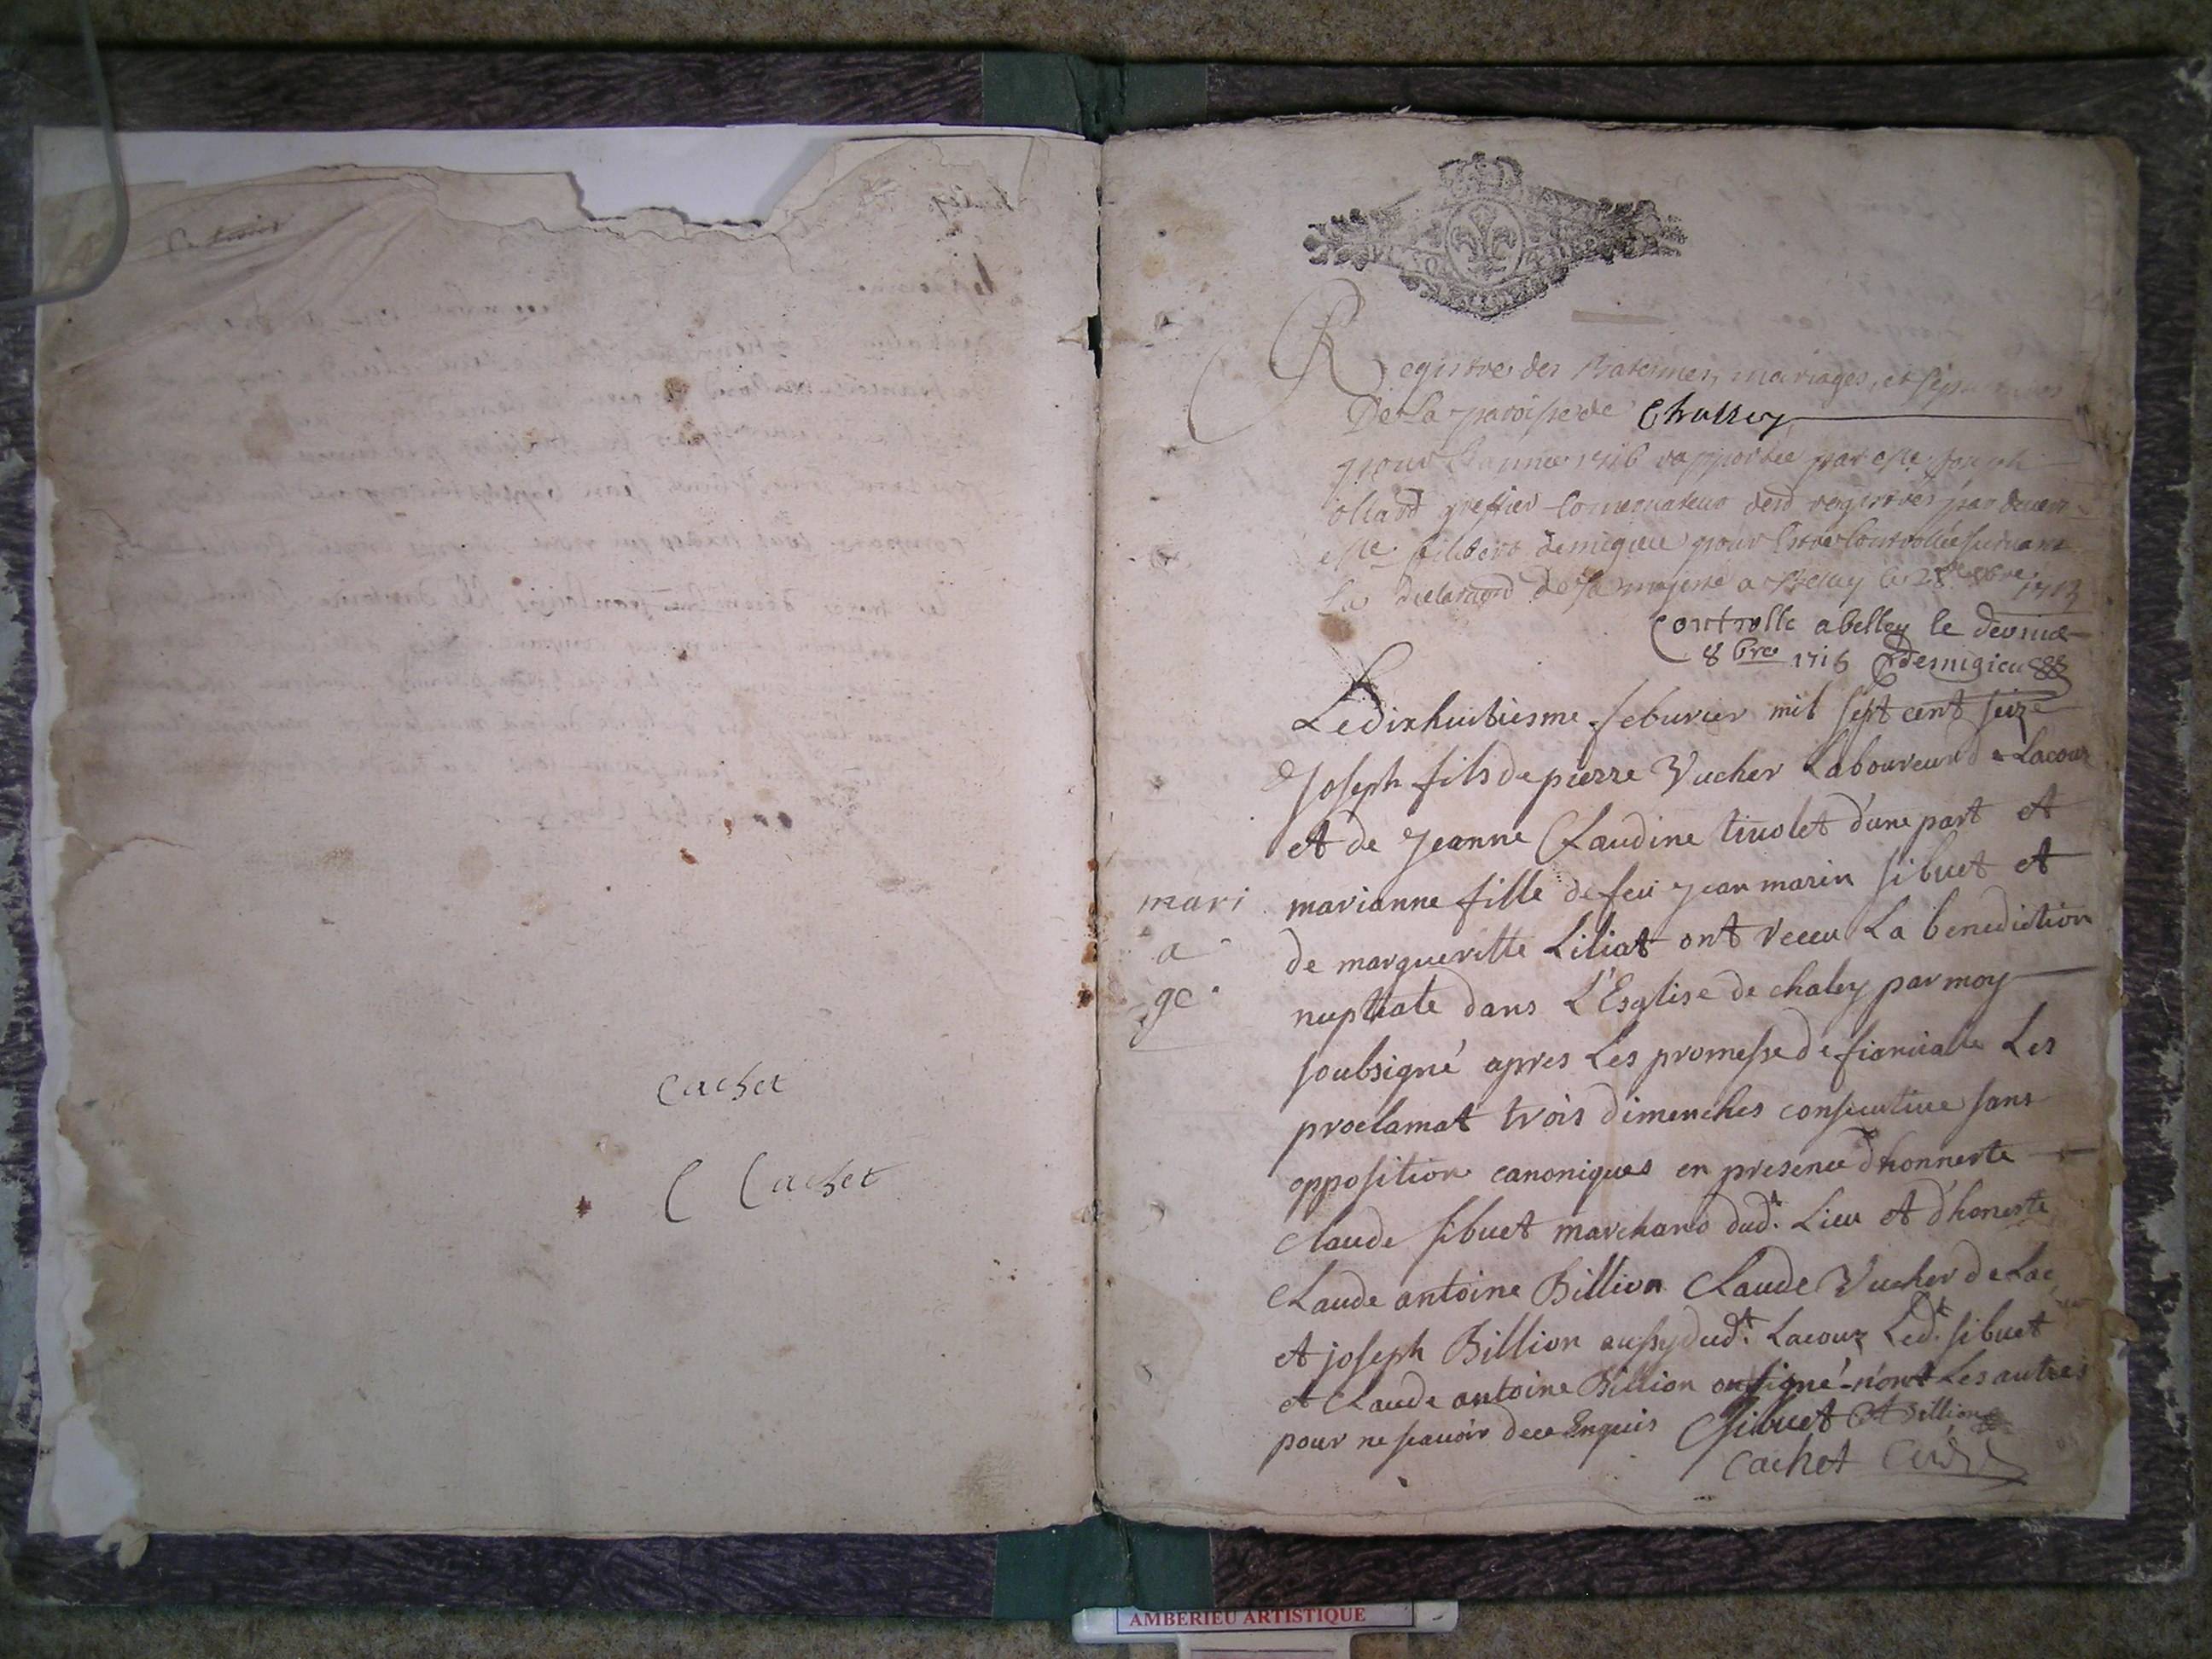 Cachet
C Cachet
Registre des Batesmes, mariages, et
De La paroisse de Challey
pour L'année 1716 rapportée par Me Joseph
greffier Conservateur desd registres par devan
Me filibert demigieu pour Estre Controllée suivant
La declaraõn de sa majesté a Belley le 28e 8bre
Controlle a belley le
8bre 1715 Demigieu
Le dixhuitiesme feburier mil sept cent seize
Joseph fils de pierre Vucher Laboureur de Lacour
et de Jeanne Claudine tiuolet d'une part et
mari
marianne fille de feu jean marin sibuet et
a
de margueritte Liliat ont receu La benediction
ge
nuptiale dans L'Esglise de chaley par moy
soubsigné apres Les promesse de fiancialle Les
proclamat trois dimenches consecutive sans
opposition canoniques en presence d'honneste
claude sibuet marchand dud.t Lieu et d'honeste
Claude antoine Billion Claude Vucher de Lac
et joseph Billion aussy dud.t Lacour Led.t sibuet
et Claude antoine Billion on signé non Les autres
pour ne scauoir de ce Enquis C sibuet CA Billion
Cachet Curé
AMBERIEU ARTISTIQUE